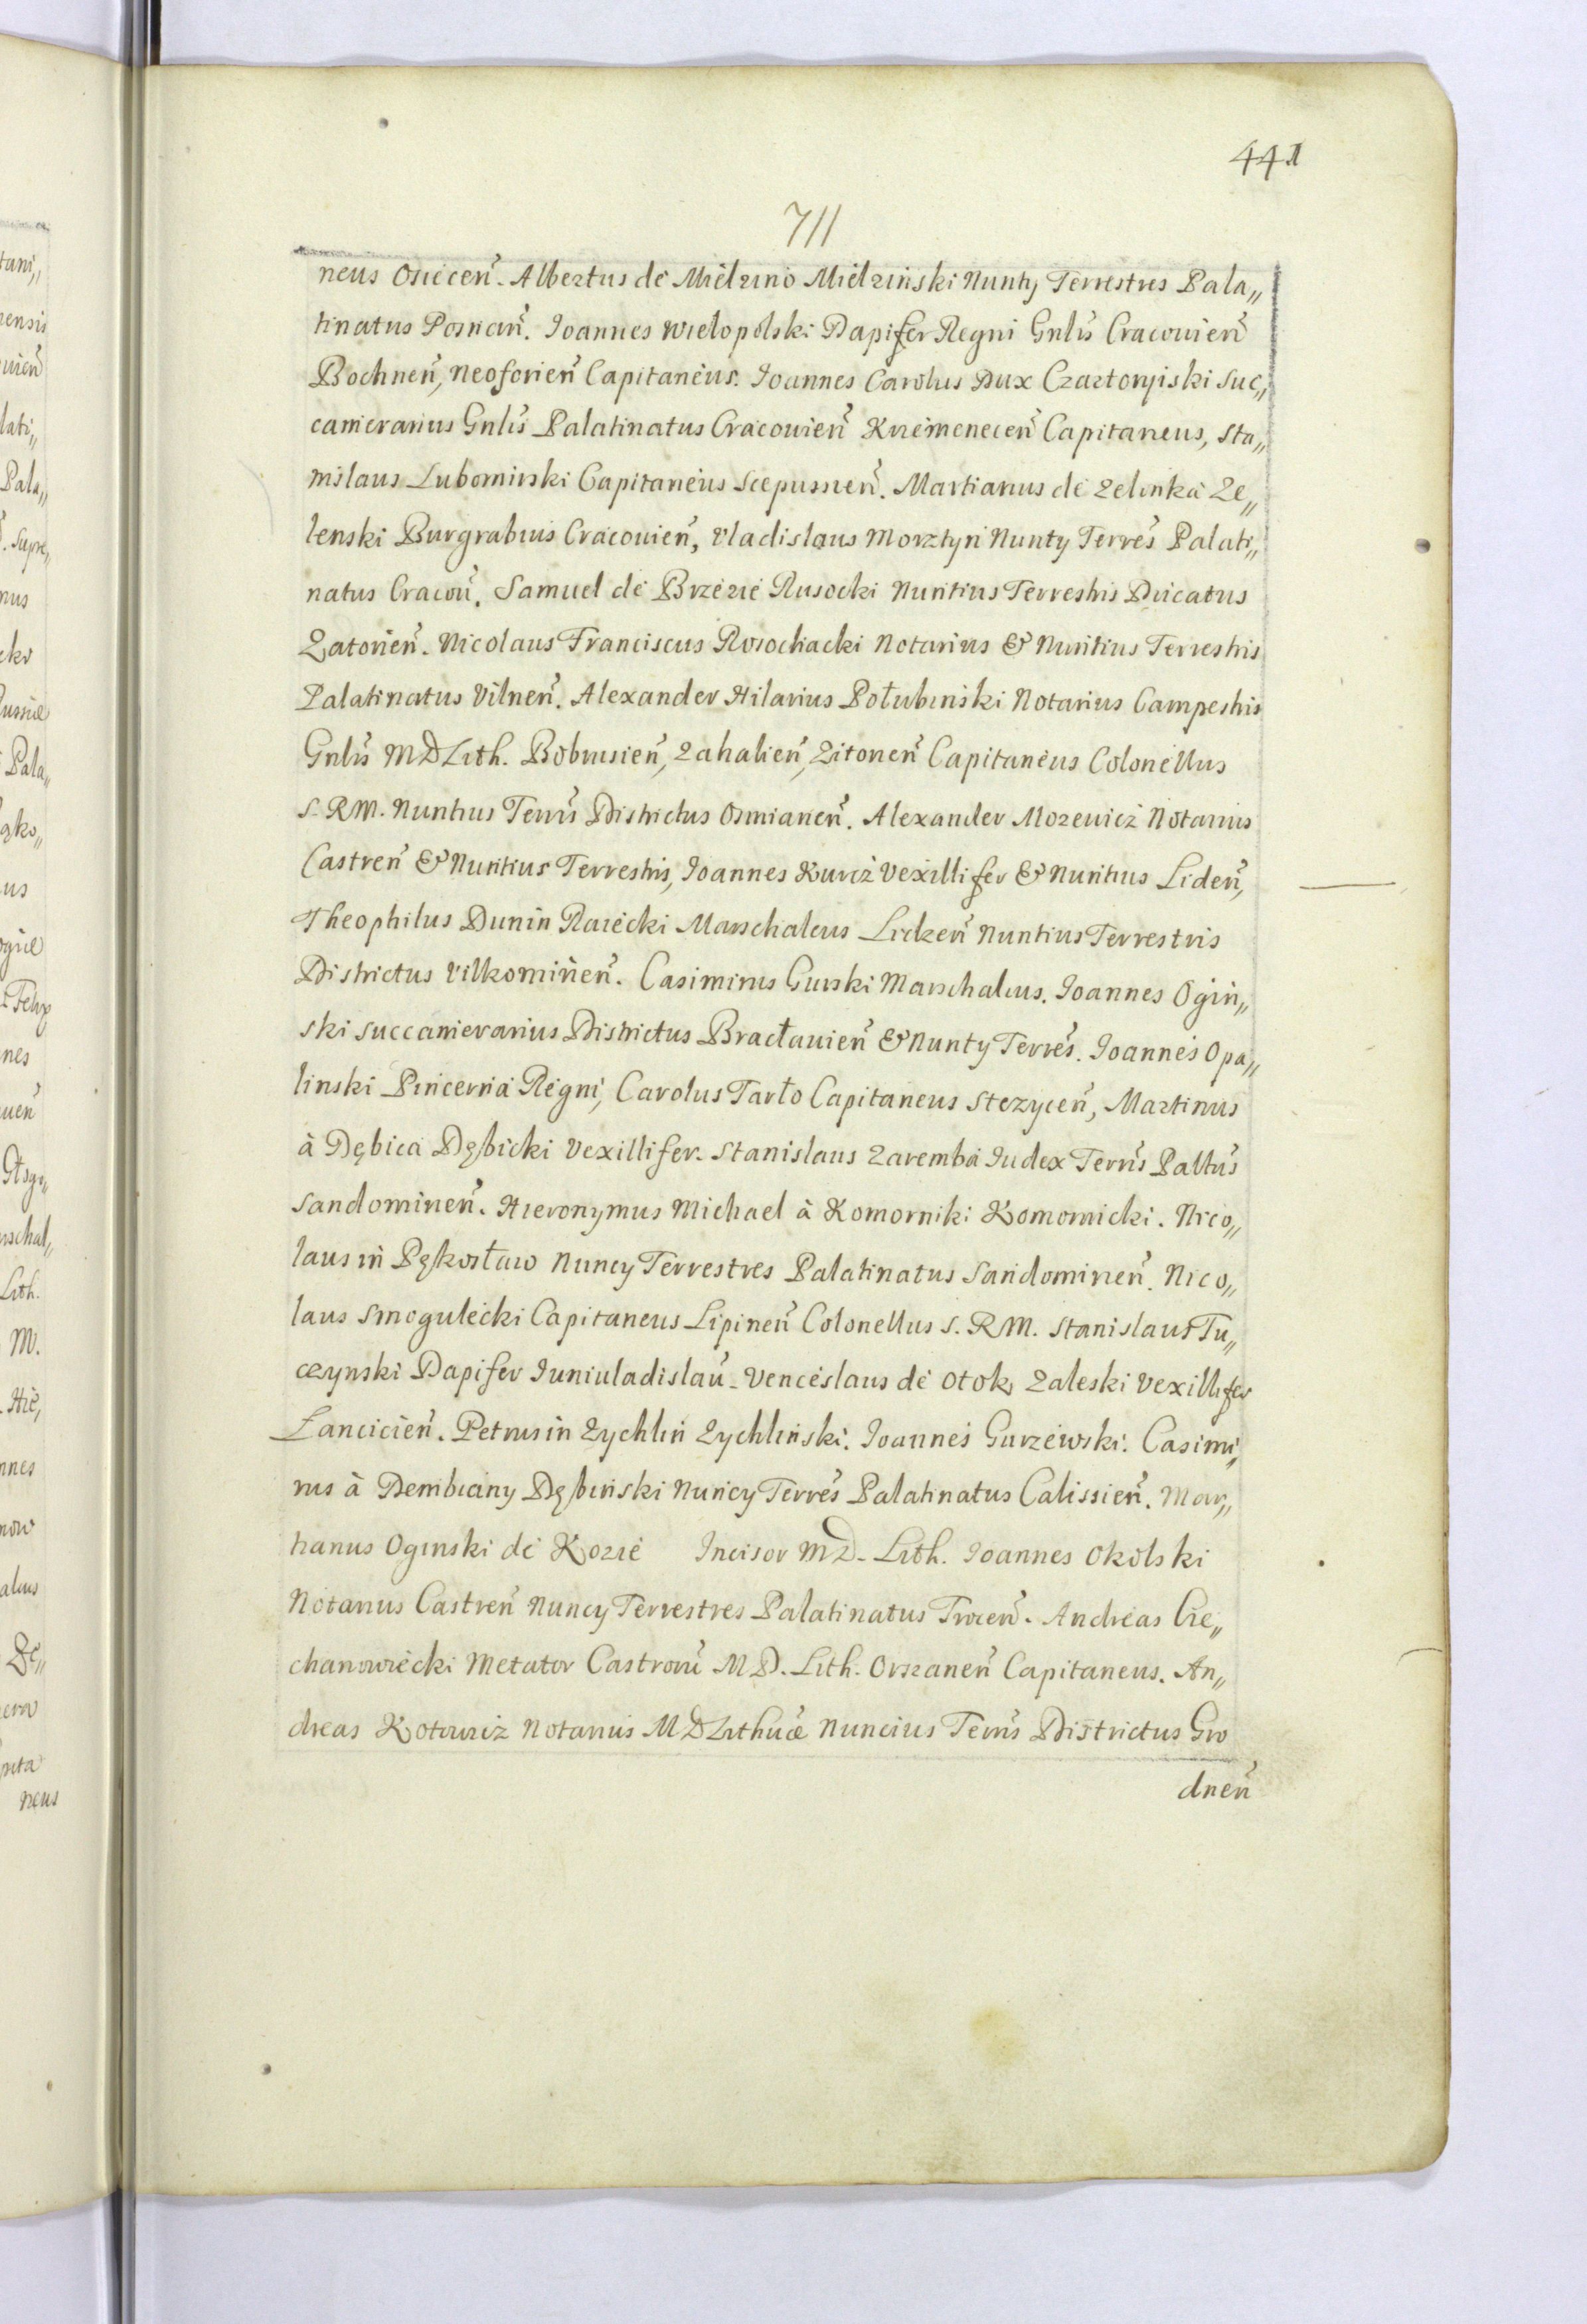 441
711
neus Osiecen̄. Albertus de Mielzino Mielzinski Nuntÿ Terrestres Pala„
tinatus Posnan̄. Ioannes Wielopolski Dapifer Regni Gnlis Cracouien̄
Bochnen̄, Neoforien̄ Capitaneus. Ioannes Carolus Dux Czartoryiski Suc„
camerarius Gnlis Palatinatus Cracouien̄ Krzemenecen̄ Capitaneus, Sta„
nislaus Lubomirski Capitaneus Scepusien̄. Martianus de Zelinka Ze„
lenski Burgrabius Cracouien̄, Vladislaus Morztyn Nunty Terres̄ Palati„
natus Cracou̅. Samuel de Brzezie Rusocki Nuntius Terrestris Ducatus
Zatorien̄. Nicolaus Franciscus Rosochacki Notarius & Nuntius Terrestris
Palatinatus Vilnen̄. Alexander Hilarius Połubinski Notarius Campestris
Gnlis MDLith. Bobruisien̄, Zahalien̄, Zitonen̄ Capitaneus Colonellus
S. RM. Nuntius Terris̄ Districtus Osmianen̄. Alexander Mozewicz Notarius
Castren̄ & Nuntius Terrestris, Ioannes Kurcz Vexillifer & Nuntius Liden̄,
Theophilus Dunin Raiecki Marschalcus Lidzen̄ Nuntius Terrestris
Districtus Vilkomirien̄. Casimirus Gurski Marschalcus. Ioannes Ogin„
ski Succamerarius Districtus Bracłauien̄ & Nunty Terres̄. Ioannes Opa„
linski Pincerna Regni, Carolus Tarło Capitaneus Stezycen̄, Martinus
à Dębica Dębicki Vexillifer. Stanislaus Zaremba Iudex Terris̄ Paltus̄
Sandomirien̄. Hieronymus Michael à Komorniki Komornicki. Nico„
laus in Pękosław Nuncy Terrestres Palatinatus Sandomirien̄. Nico„
laus Smogulecki Capitaneus Lipinen̄ Colonellus S. RM. Stanislaus Tu„
czynski Dapifer Iuniuladislau̅. Venceslaus de Otok Zaleski Vexillifer
Lancicien̄. Petrus in Zychlin Zychlinski. Ioannes Gurzewski. Casimi„
rus à Dembiany Dębinski Nuncy Terres̄ Palatinatus Calissien̄. Mar„
tianus Oginski de Kozie Incisor MD. Lith. Ioannes Okolski
Notarius Castren̄ Nuncy Terrestres Palatinatus Trocen̄. Andreas Cie„
chanowiecki Metator Castroru̅ MD. Lith. Orszanen̄ Capitaneus. An„
dreas Kotowicz Notarius MDLithuæ Nuncius Terris̄ Districtus Gro
dnen̄